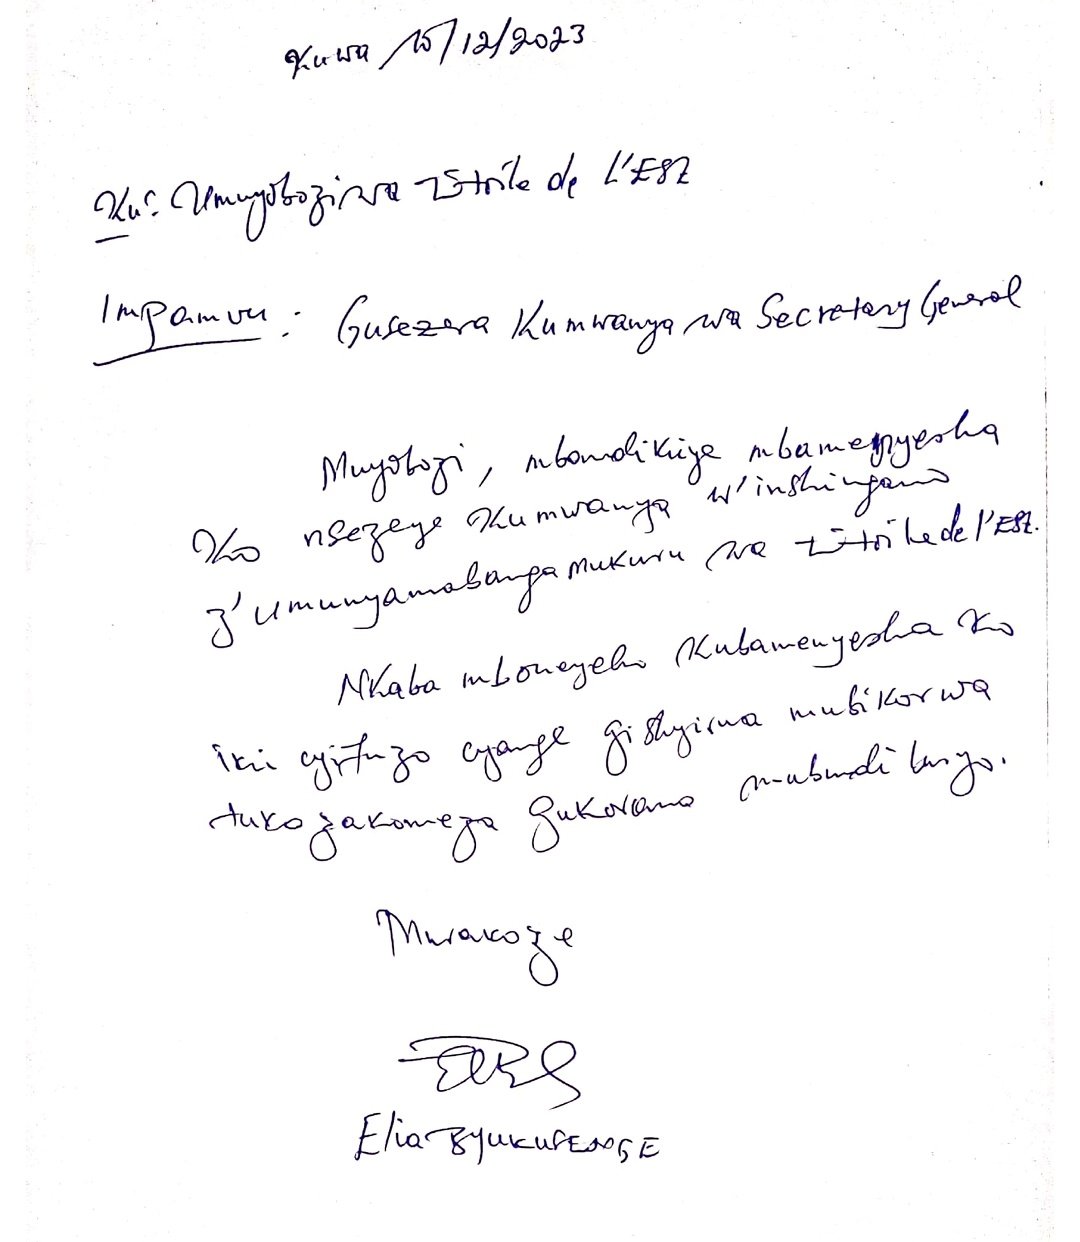 Kuwa 15/12/2023
Ku: Umuyobozi wa Etoile de l'EST
Impamvu : Gusezera Kumwanya wa Secretary General
Muyobozi, mbandikiye mbamenyesha
Ko nsezeye Kumwanya w'inshingano
z'umunyamabanga mukuru wa Etoile de l'EST.
Nkaba mboneyeho Kubamenyesha Ko
iki cyifuzo cyange gishyirwa mubikorwa
tukazakomeza gukorana mubundi buryo.
Murakoze
Elia BYUKUSENGE